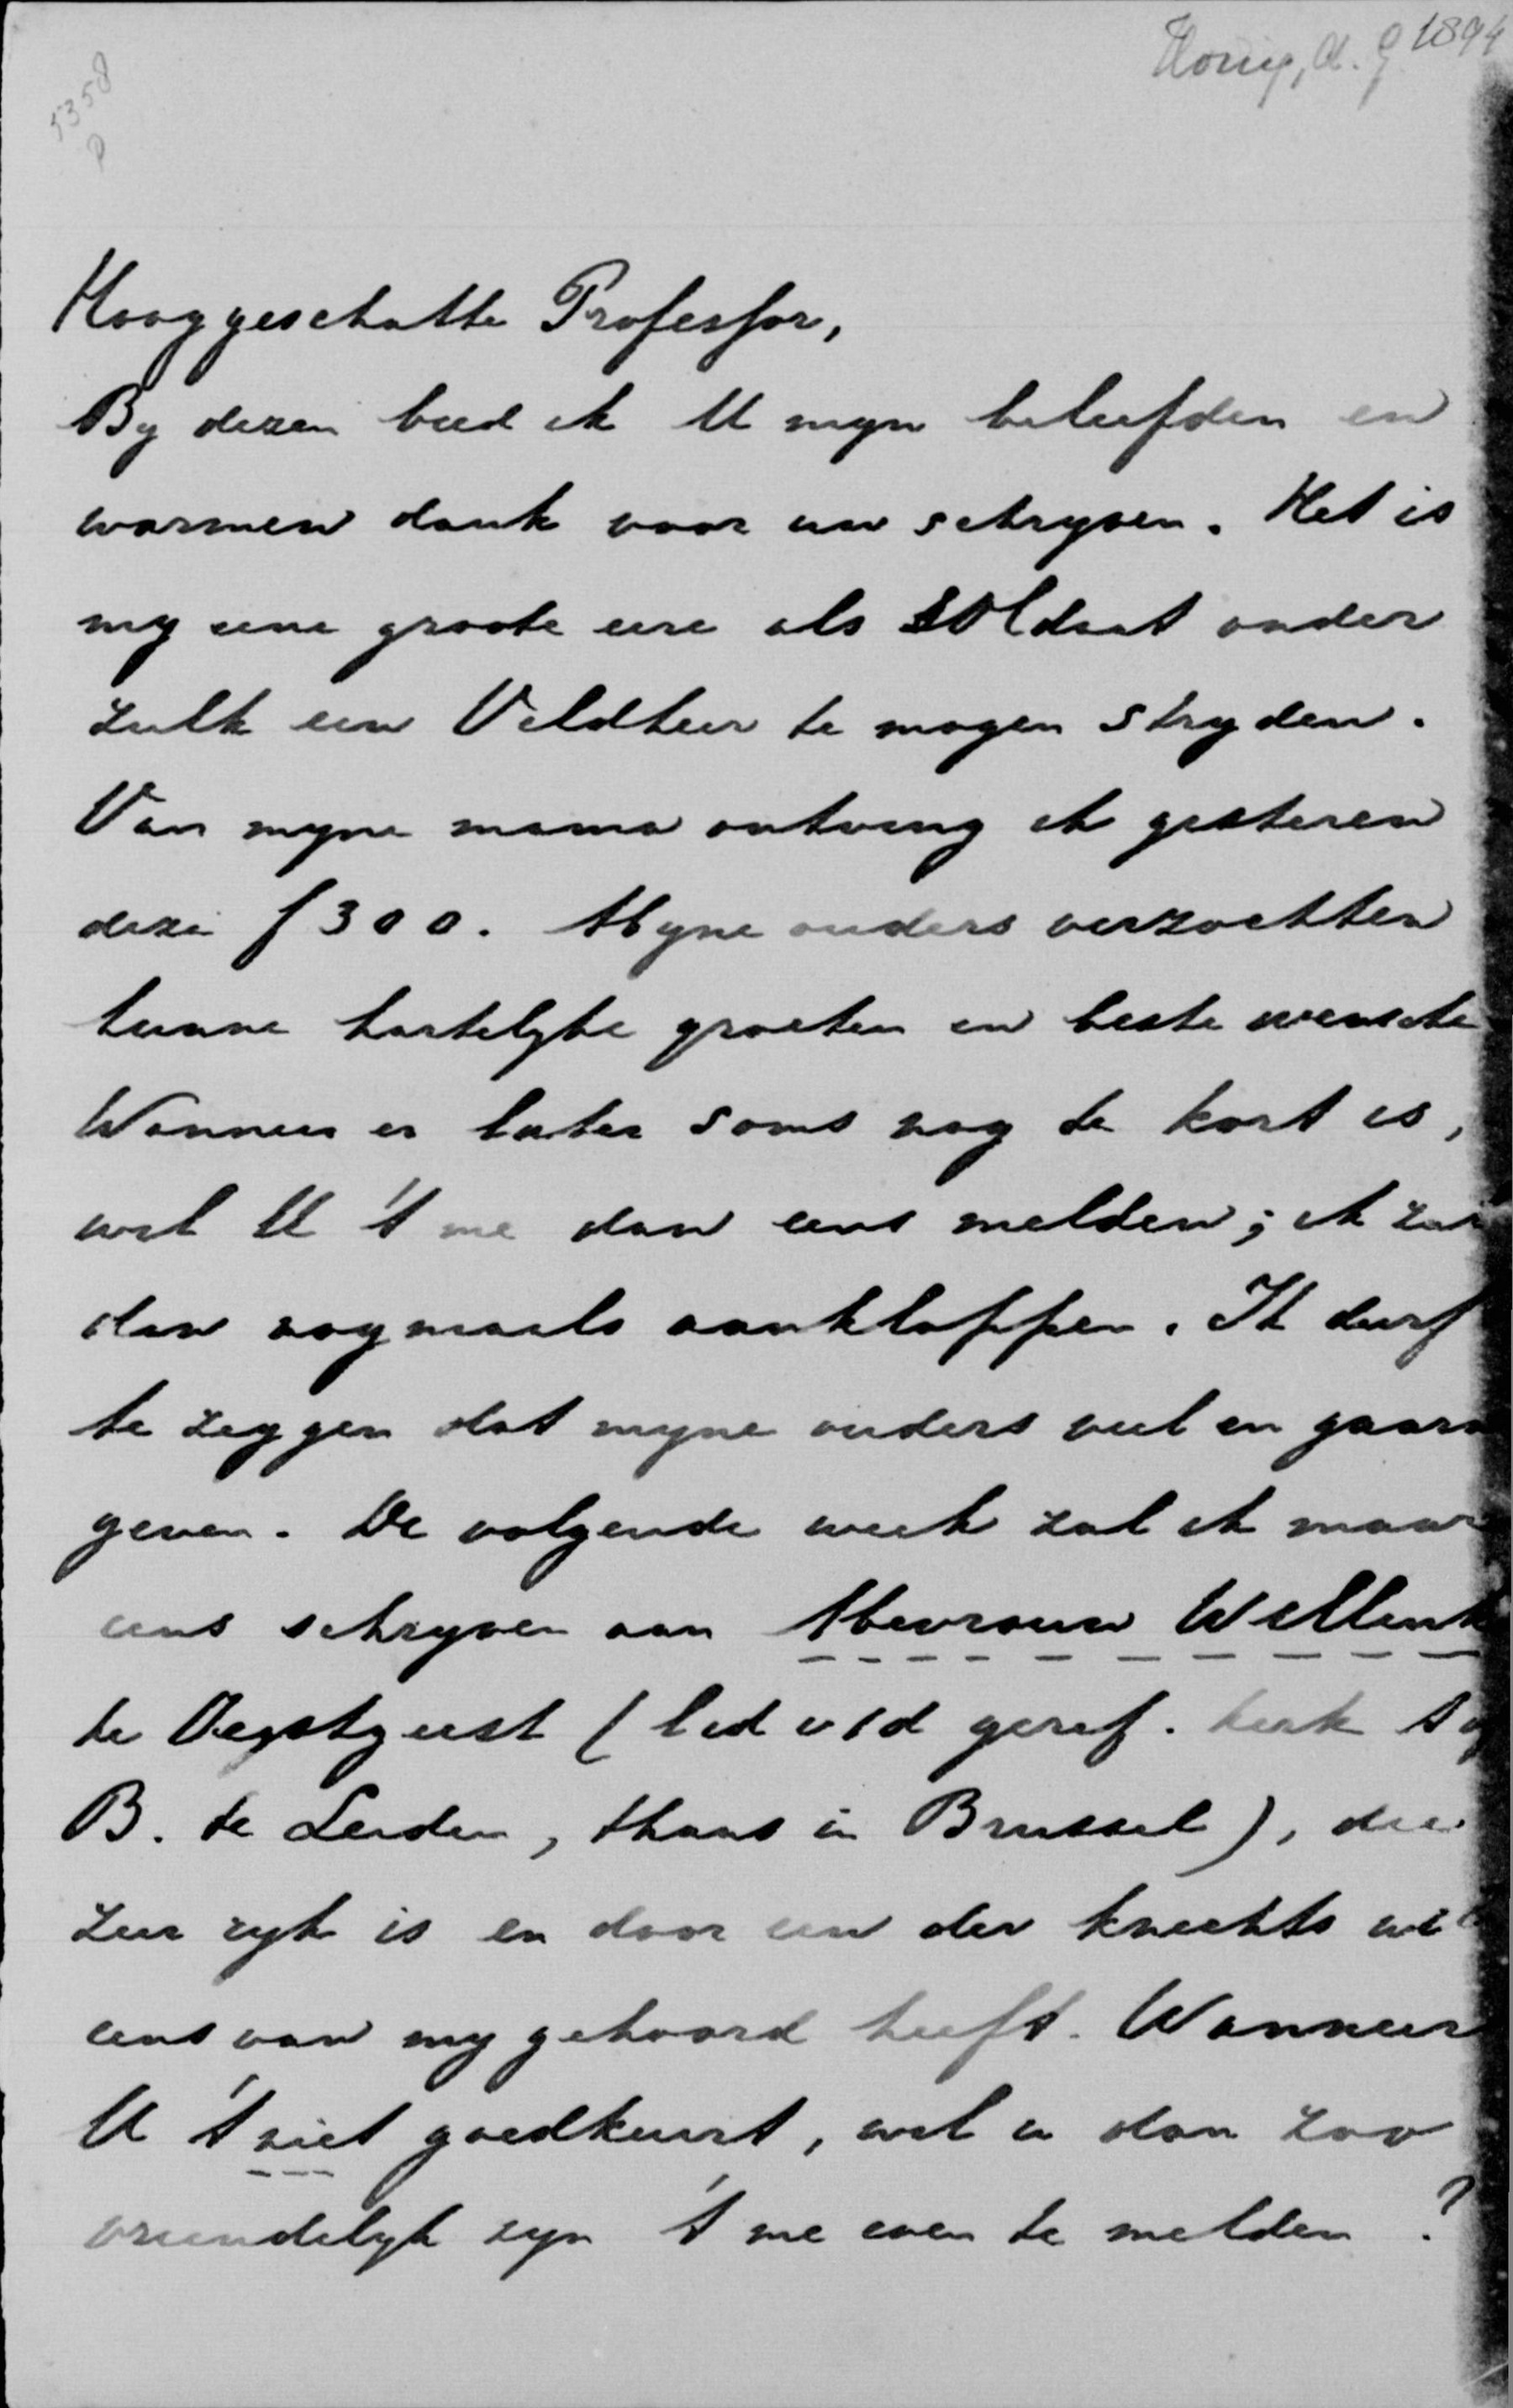 Honig, A. G. 1894
5358
Hooggeschatte Professor,
By dezen bied ik U myn beleefden en
warmen dank voor uw schryven. Het is
my eene groote eere als soldaat onder
zulk een Veldheer te mogen stryden.
Van myne mama ontving ik gisteren
deze f 300. Myne ouders verzochten
hunne hartelyke groeten en beste wensche
Wanneer er later soms nog te kort is,
wil U 't me dan eens melden; ik zal
dan nogmaals aankloppen. Ik durf
te zeggen dat myne ouders veel en gaarn
geven. De volgende week zal ik maar
eens schryven aan Mevrouw Willink
te Oegstgeest (lid v/d geref. kerk
B. te Leiden, thans in Brussel), die
zeer ryk is en door een der knechts wel
eens van my gehoord heeft. Wanneer
U 't niet goedkeurt, wil u dan zoo
vriendelyk zyn 't me even te melden?